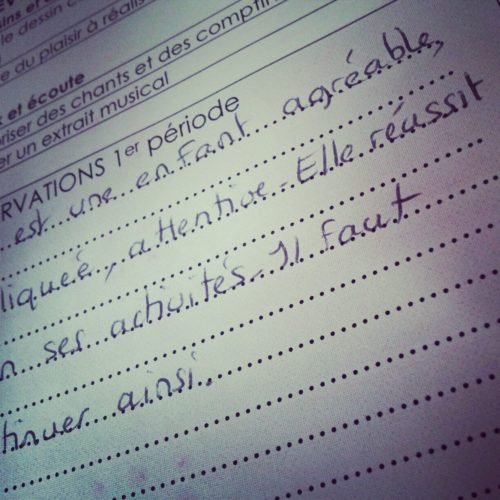 ie dessin
e du plaisir à réalis
et écoute
oriser des chants et des comptin
er un extrait musical
RVATIONS 1er période
est une enfant agréable,
liqueé, attentive. Elle réussit
n ses activités. Il faut
tinuer ainsi.